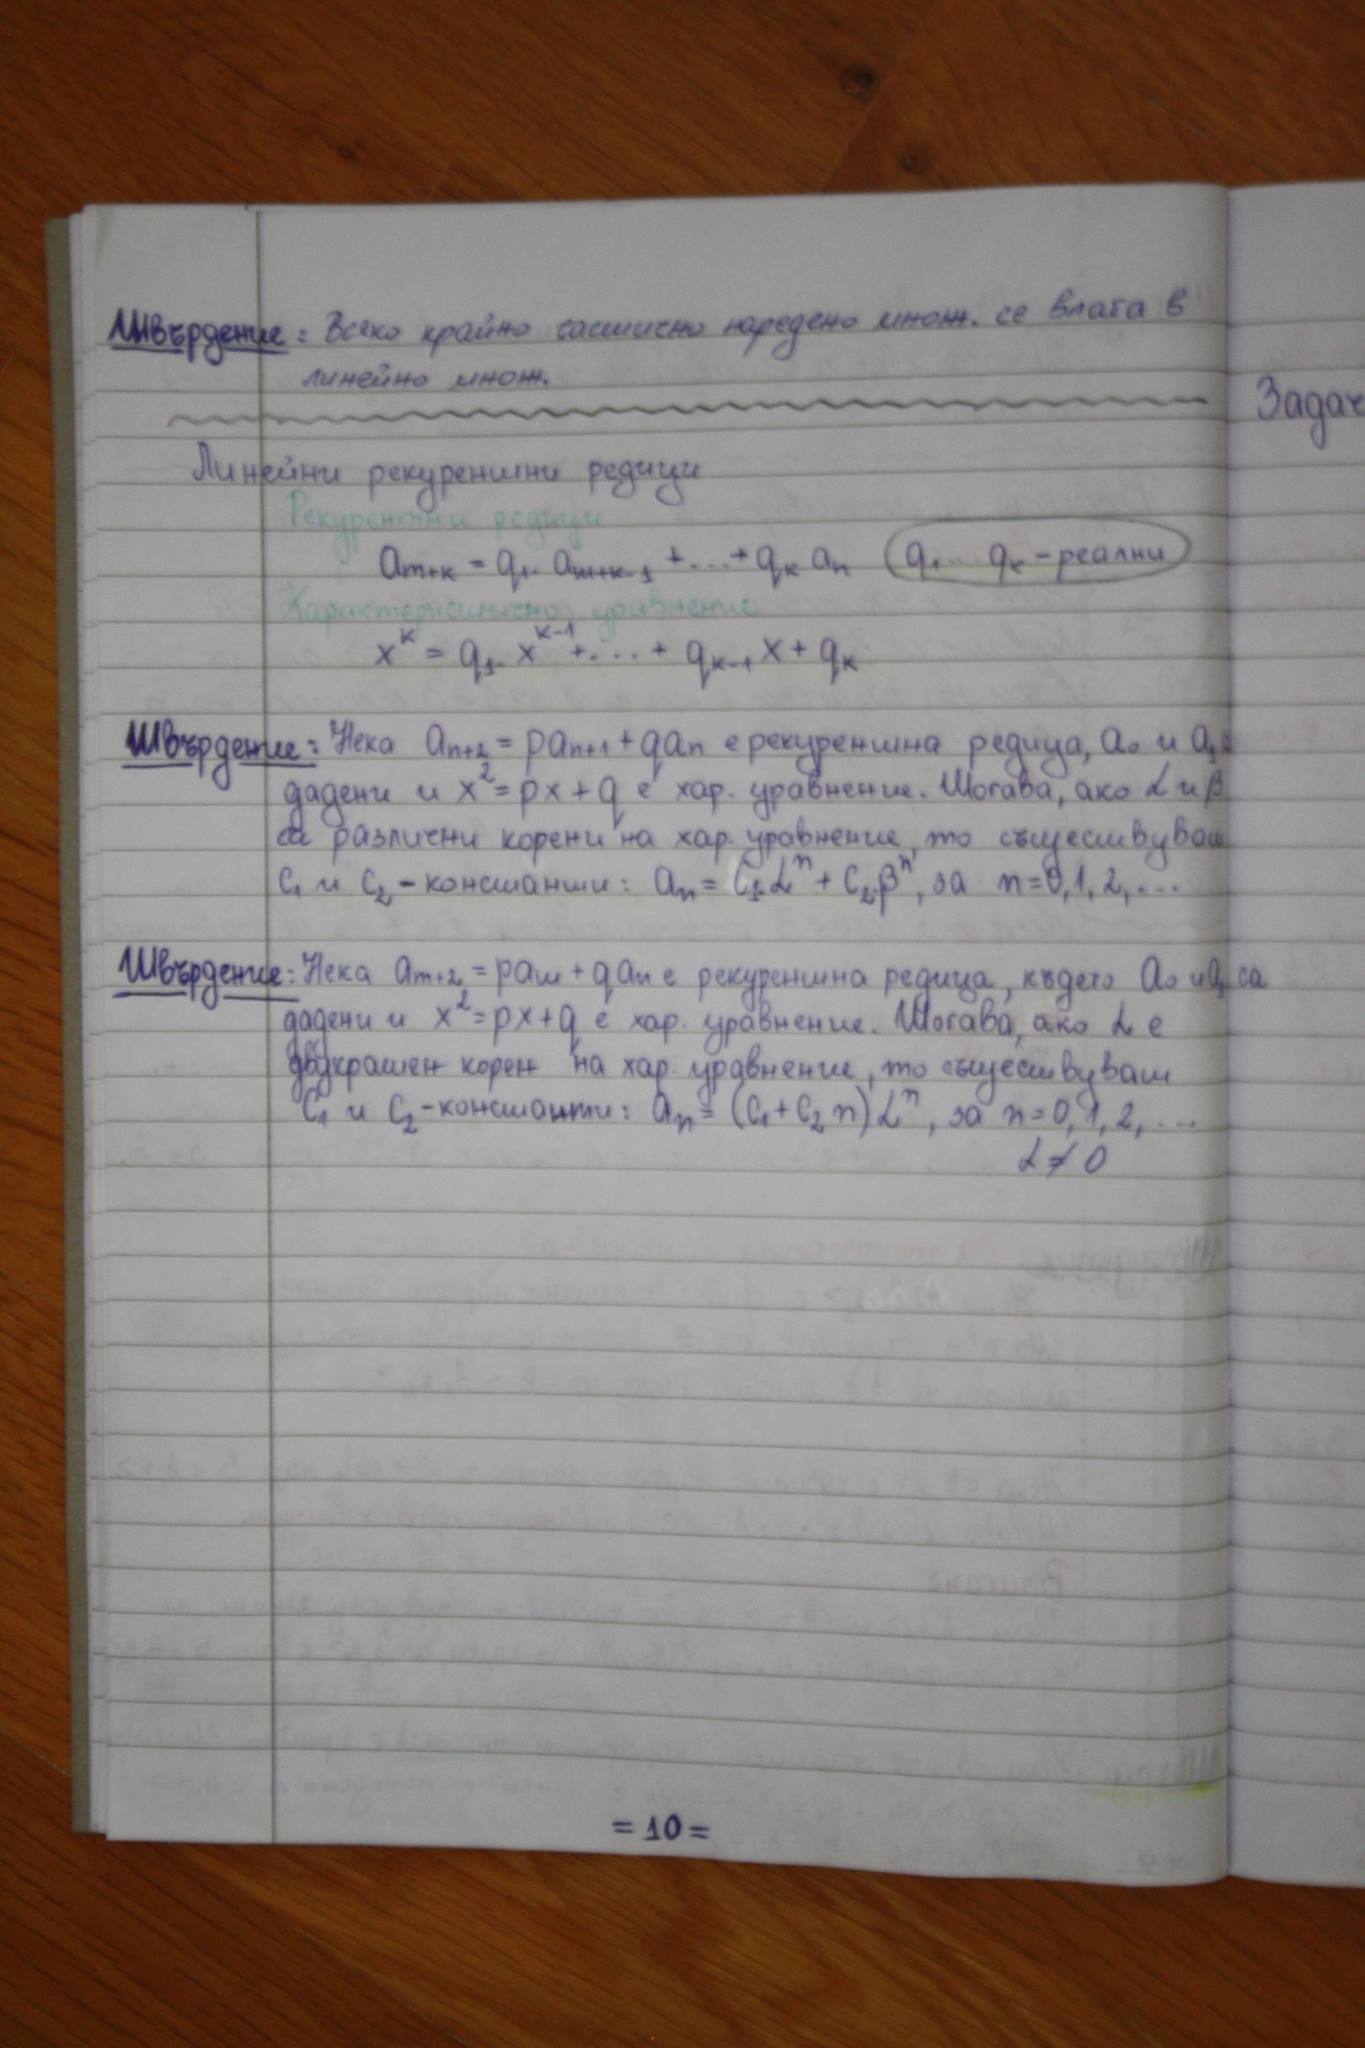 Твърдение: Всяко крайно частично наредено множ. се влага в
линейно множ.
Задач
Линейни рекурентни редици
Рекурентни редици
aₙ₊ₖ = q₁. aₙ₊ₖ₋₁ +...+ qₖ aₙ (q₁... qₖ - реални)
Характеристично уравнение
xᵏ = q₁. xᵏ⁻¹ +...+ qₖ₋₁ x + qₖ
Твърдение: Нека aₙ₊₂ = paₙ₊₁ + qaₙ е рекурентна редица, a₀ и a₁
дадени и x² = px + q е хар. уравнение. Тогава, ако α и β
са различни корени на хар. уравнение, то съществуват
c₁ и c₂ - константи: aₙ = c₁.αⁿ + c₂.βⁿ, за n = 0, 1, 2, ...
Твърдение: Нека aₙ₊₂ = paₙ + qaₙ е рекурентна редица, където a₀ и a₁ са
дадени и x² = px + q е хар. уравнение. Тогава, ако α е
двукратен корен на хар. уравнение, то съществуват
c₁ и c₂ - константи: aₙ = (c₁ + c₂ n) αⁿ, за n = 0, 1, 2, ...
α ≠ 0
= 10 =